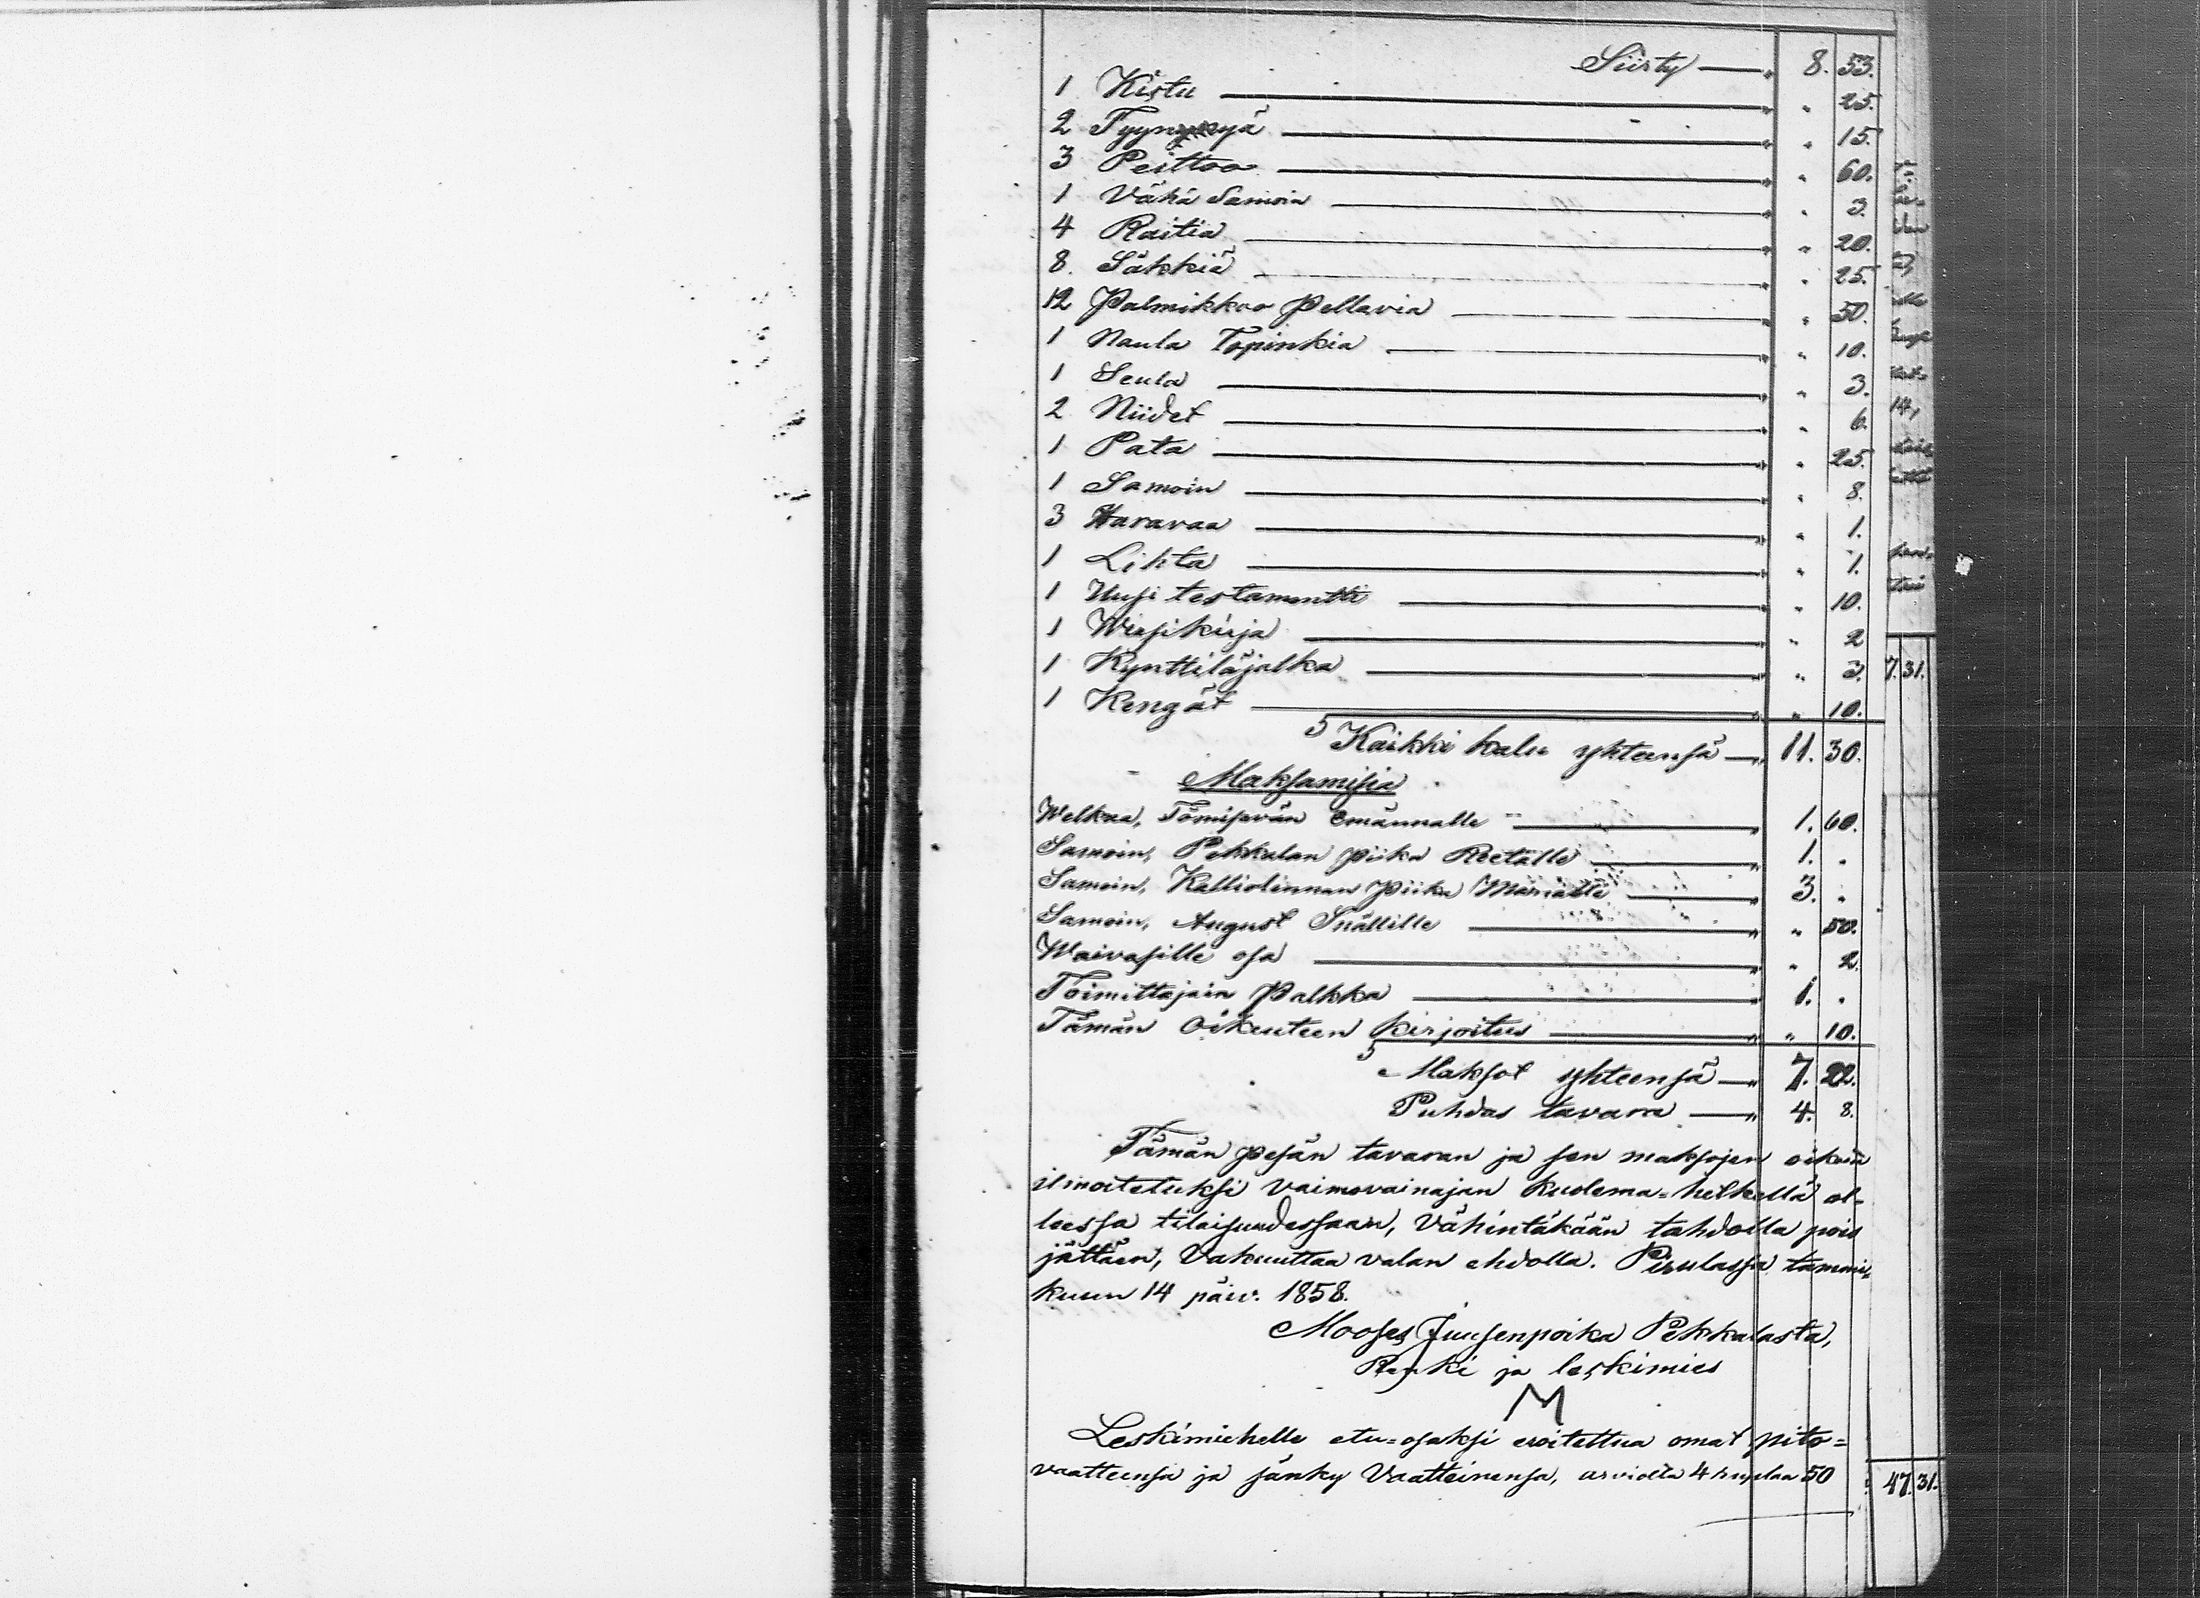 Siirty — „ 8. 53.
1 Kistu „ „ 25.
2 Tyynyä „ „ 15.
3 Peittoo „ „ 60.
1 Vähä Samoin „ „ 3.
4 Raitia „ „ 20.
8. Säkkiä „ „ 25.
12 Palmikkoo Pellavia „ „ 50.
1 Naula Topinkia „ „ 10.
1 Seula „ „ 3.
2 Niidet „ „ 6.
1 Pata „ „ 25.
1 Samoin „ „ 8.
3 Haravaa „ „ 1.
1 Lihta „ „ 1.
1 Uusi testamentti „ „ 10.
1 Wirsikirja „ „ 2
1 Kynttiläjalka „ „ 3.
1 Kengät „ „ 10.
Kaikki kalu yhteensä — „ 11. 30.
Maksamisia
Welkaa, Tömisevän Emännälle „ 1. 60.
Samoin, Pekkalan piika Reetalle „ 1. „
Samoin, Kalliolinnan Piika Marialle „ 3. „
Samoin, August Snällille „ „ 50.
Waivasille osa „ „ 2.
Toimittajain Palkka „ 1. „
Tämän Oikeuteen kirjoitus „ „ 10.
Maksot yhteensä — „ 7. 22.
Puhdas tavara — „ 4. 8.
Tämän pesän tavaran ja sen maksojen oikein
ilmoitetuksi vaimovainajan kuolema=hetkellä ol-
leessa tilaisuudessaan, Vähintäkään tahdolla pois
jättäen, Vakuuttaa valan ehdolla. Pirulassa tammi=
kuun 14 päiv. 1858.
Mooses Juusenpoika Pekkalasta,
Renki ja leskimies
M
Leskimiehelle etu=osaksi eroitettua omat pito=
vaatteensa ja sänky Vaatteinensa, arviolta 4 ruplaa 50
7. 31.
47. 31.